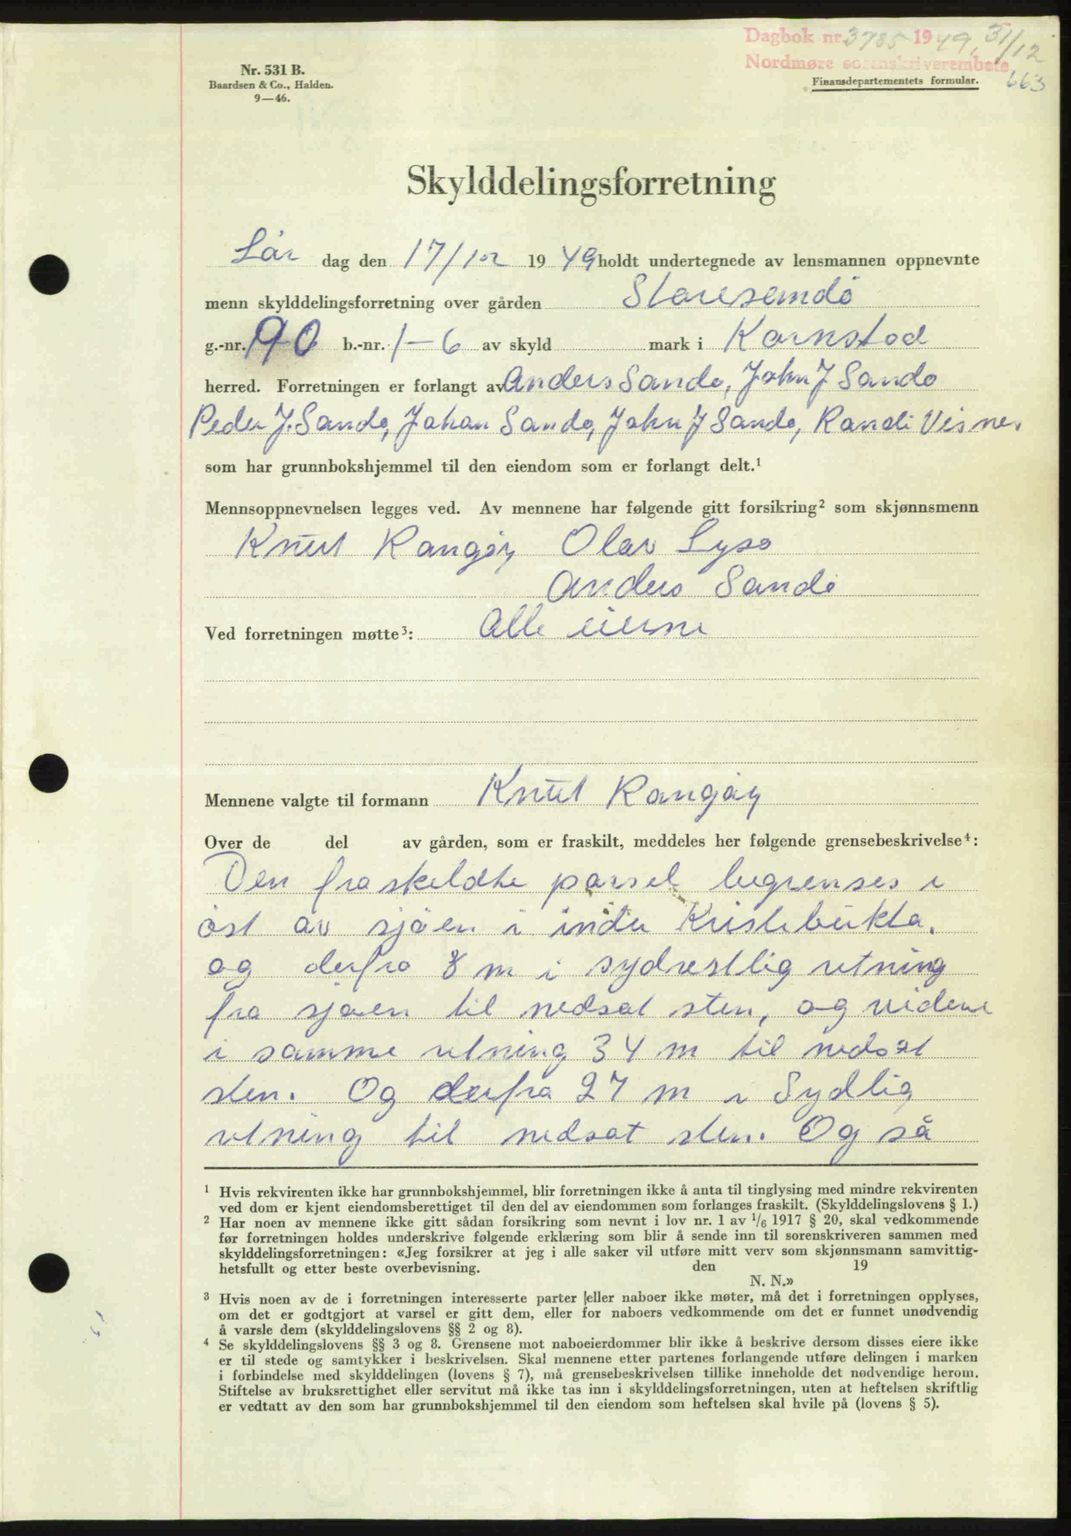 Dagbok nr. 3785 1949, 31/12
Nordmøre sorenskriverembete
663
Nr. 531 B.
Baardsen & Co., Halden.
9—46.
Finansdepartementets formular.
Skylddelingsforretning
Lør dag den 17/12 1949 holdt undertegnede av lensmannen oppnevnte
menn skylddelingsforretning over gården Storesandø
g.-nr. 90 b.-nr. 1-6 av skyld mark i Kornstad
herred. Forretningen er forlangt av Anders Sandø, John J Sandø
Peder J. Sandø, Johan Sandø, John J Sandø, Randi Visnes
som har grunnbokshjemmel til den eiendom som er forlangt delt.¹
Mennsoppnevnelsen legges ved. Av mennene har følgende gitt forsikring² som skjønnsmenn
Knut Rangøy Olav Lysø
Anders Sandø
Ved forretningen møtte³: Alle eierne
Mennene valgte til formann Knut Rangøy
Over de del av gården, som er fraskilt, meddeles her følgende grensebeskrivelse⁴:
Den fraskeldte parsel begrenses i
øst av sjøen i indre
og derfra 8 m i sydvestlig retning
fra sjøen til nedsat sten, og videre
i samme retning 34 m til nedsat
sten. Og derfra 27 m i Sydlig
retning til nedsat sten. Og så
¹ Hvis rekvirenten ikke har grunnbokshjemmel, blir forretningen ikke å anta til tinglysing med mindre rekvirenten
ved dom er kjent eiendomsberettiget til den del av eiendommen som forlanges fraskilt. (Skylddelingslovens § 1.)
² Har noen av mennene ikke gitt sådan forsikring som nevnt i lov nr. 1 av 1/6 1917 § 20, skal vedkommende
før forretningen holdes underskrive følgende erklæring som blir å sende inn til sorenskriveren sammen med
skylddelingsforretningen: «Jeg forsikrer at jeg i alle saker vil utføre mitt verv som skjønnsmann samvittig-
hetsfullt og etter beste overbevisning. den 19
N. N.»
³ Hvis noen av de i forretningen interesserte parter eller naboer ikke møter, må det i forretningen opplyses,
om det er godtgjort at varsel er gitt dem, eller for naboers vedkommende om det er funnet unødvendig
å varsle dem (skylddelingslovens §§ 2 og 8).
⁴ Se skylddelingslovens §§ 3 og 8. Grensene mot naboeierdommer blir ikke å beskrive dersom disses eiere ikke
er til stede og samtykker i beskrivelsen. Skal mennene etter partenes forlangende utføre delingen i marken
i forbindelse med skylddelingen (lovens § 7), må grensebeskrivelsen tillike inneholde det nødvendige herom.
Stiftelse av bruksrettighet eller servitut må ikke tas inn i skylddelingsforretningen, uten at heftelsen skriftlig
er vedtatt av den som har grunnbokshjemmel til den eiendom som heftelsen skal hvile på (lovens § 5).